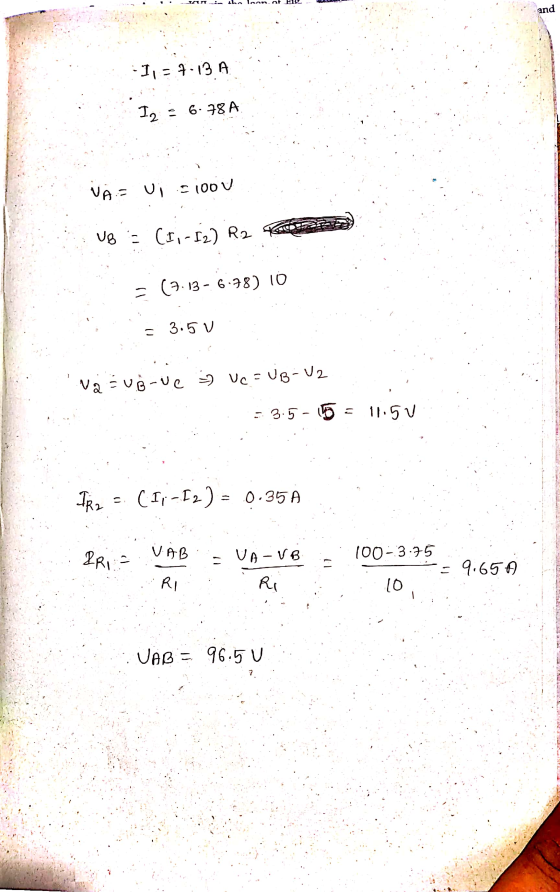 and
I₁ = 7.13 A
I₂ = 6.78 A
VA = V₁ = 100 V
VB = (I₁-I₂) R₂
= (7.13 - 6.78) 10
= 3.5 V
V₂ = VB - VC ⇒ VC = VB - V₂
= 3.5 - 15 = 11.5 V
IR₂ = (I₁-I₂) = 0.35 A
IR₁ = VAB / R₁ = VA - VB / R₁ = 100 - 3.75 / 10 = 9.65 A
VAB = 96.5 V